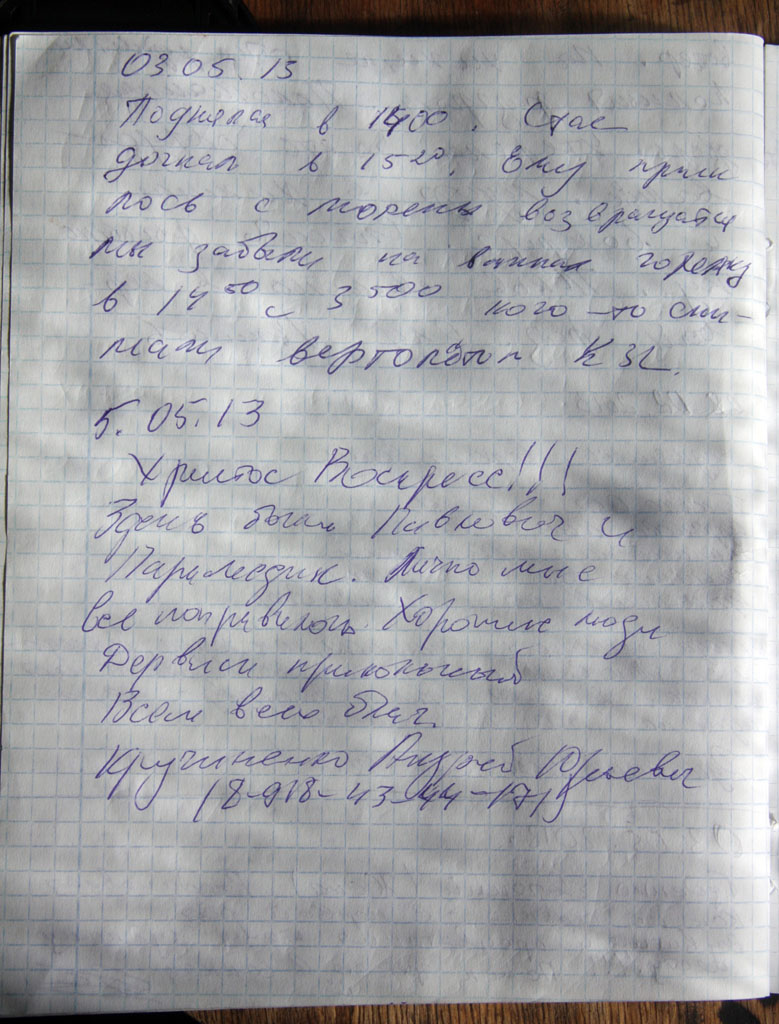 03.05.13
Поднялся в 1400. Стас
догнал в 15 20. Ему приш
лось с морены возвращатся
мы забыли на горелку
в 14 50 с 3500 кого-то сни-
мали вертолётом К 32.
5.05.13
Христос Воскресе!!!
Здесь были Павлович и
Парамедик. Лично мне
все понравилось Хорошие люди
Дервиш прикольный
Всем всех благ.
Кручиненко Андрей Юрьевич
(8-918-43-44-171)